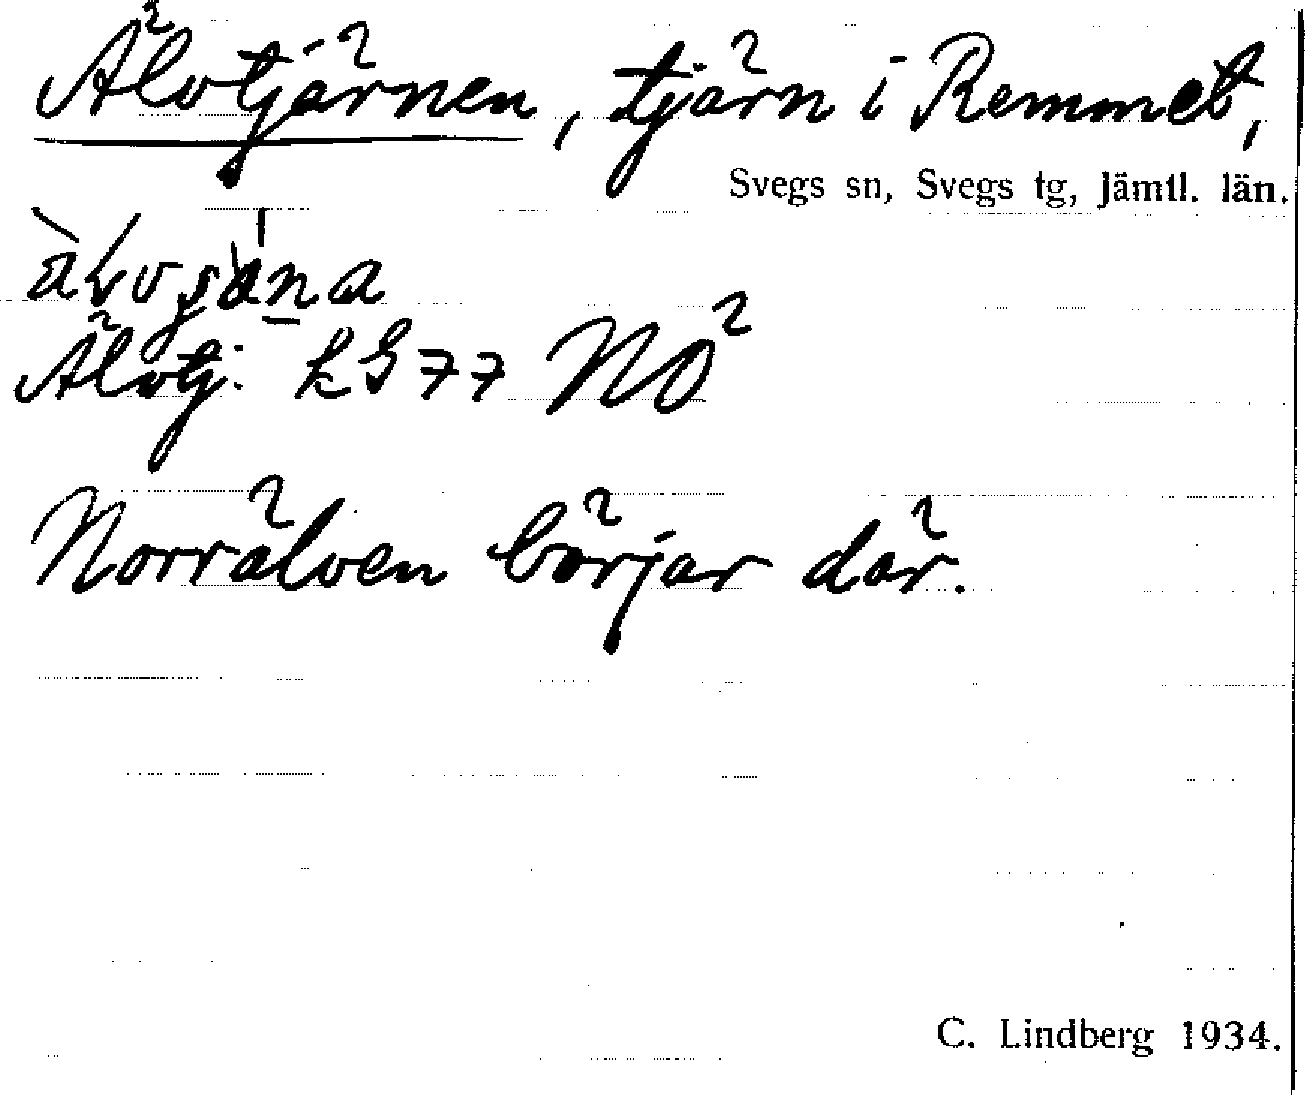 Älvtjärnen, tjärn i Remmet,
Svegs sn, Svegs tg, Jämtl. län.
Älvtj. LS 77 NO
Norrälven börjar där.
C. Lindberg 1934.